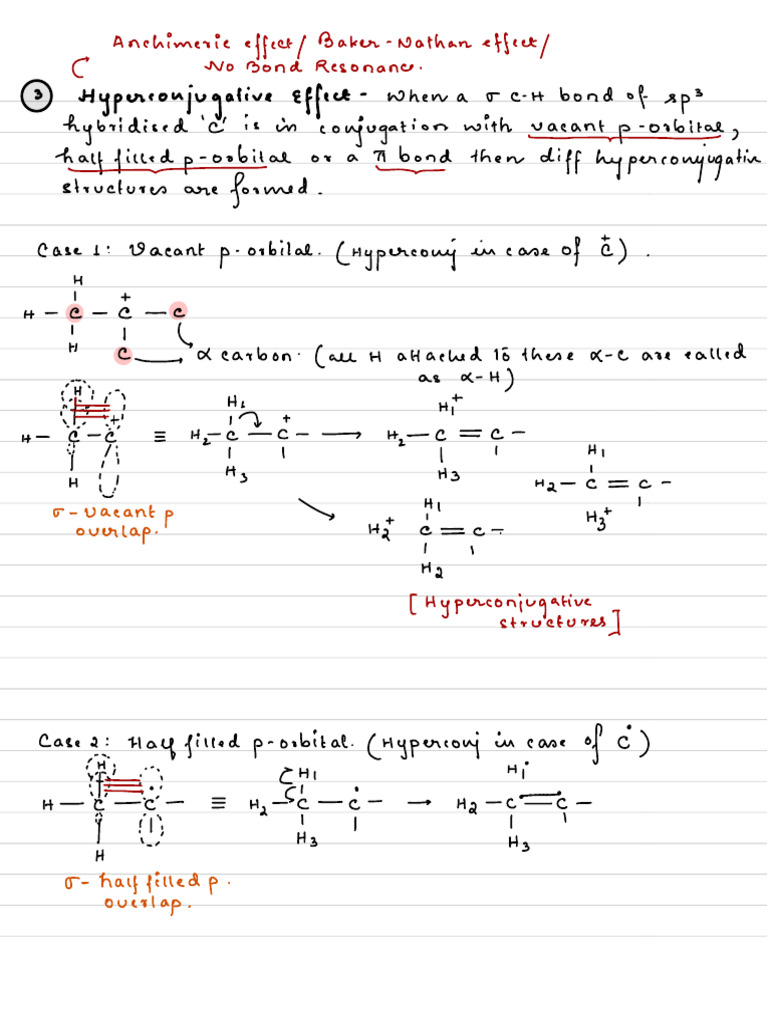 Anchimeric effect/ Baker-Nathan effect/
No Bond Resonance.
3 Hyperconjugative Effect - When a σ C-H bond of sp³
hybridised 'C' is in conjugation with vacant p-orbital,
half filled p-orbital or a π bond then diff hyperconjugativ
structures are formed.
Case 1: Vacant p-orbital. (Hyperconj in case of C⁺).
H
H - C - C⁺ - C
H C → α carbon. (all H attached to these α-C are called
as α-H)
H H₁ H₁⁺
H - C - C⁺ ≡ H₂ - C - C⁺ - → H₂ - C = C -
H H₃ H₃
H₁
H₂ - C = C -
H₃⁺
σ - vacant p
overlap.
H₁
H₂⁺ C = C -
H₂
[Hyperconjugative
structures]
Case 2: Half filled p-orbital. (Hyperconj in case of Ċ)
H H₁ H₁•
H - C - Ċ - ≡ H₂ - C - Ċ - → H₂ - C = C -
H H₃ H₃
σ - half filled p.
overlap.